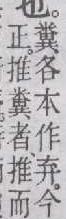 也。
糞、各本作弃。今
正。推糞者、推而